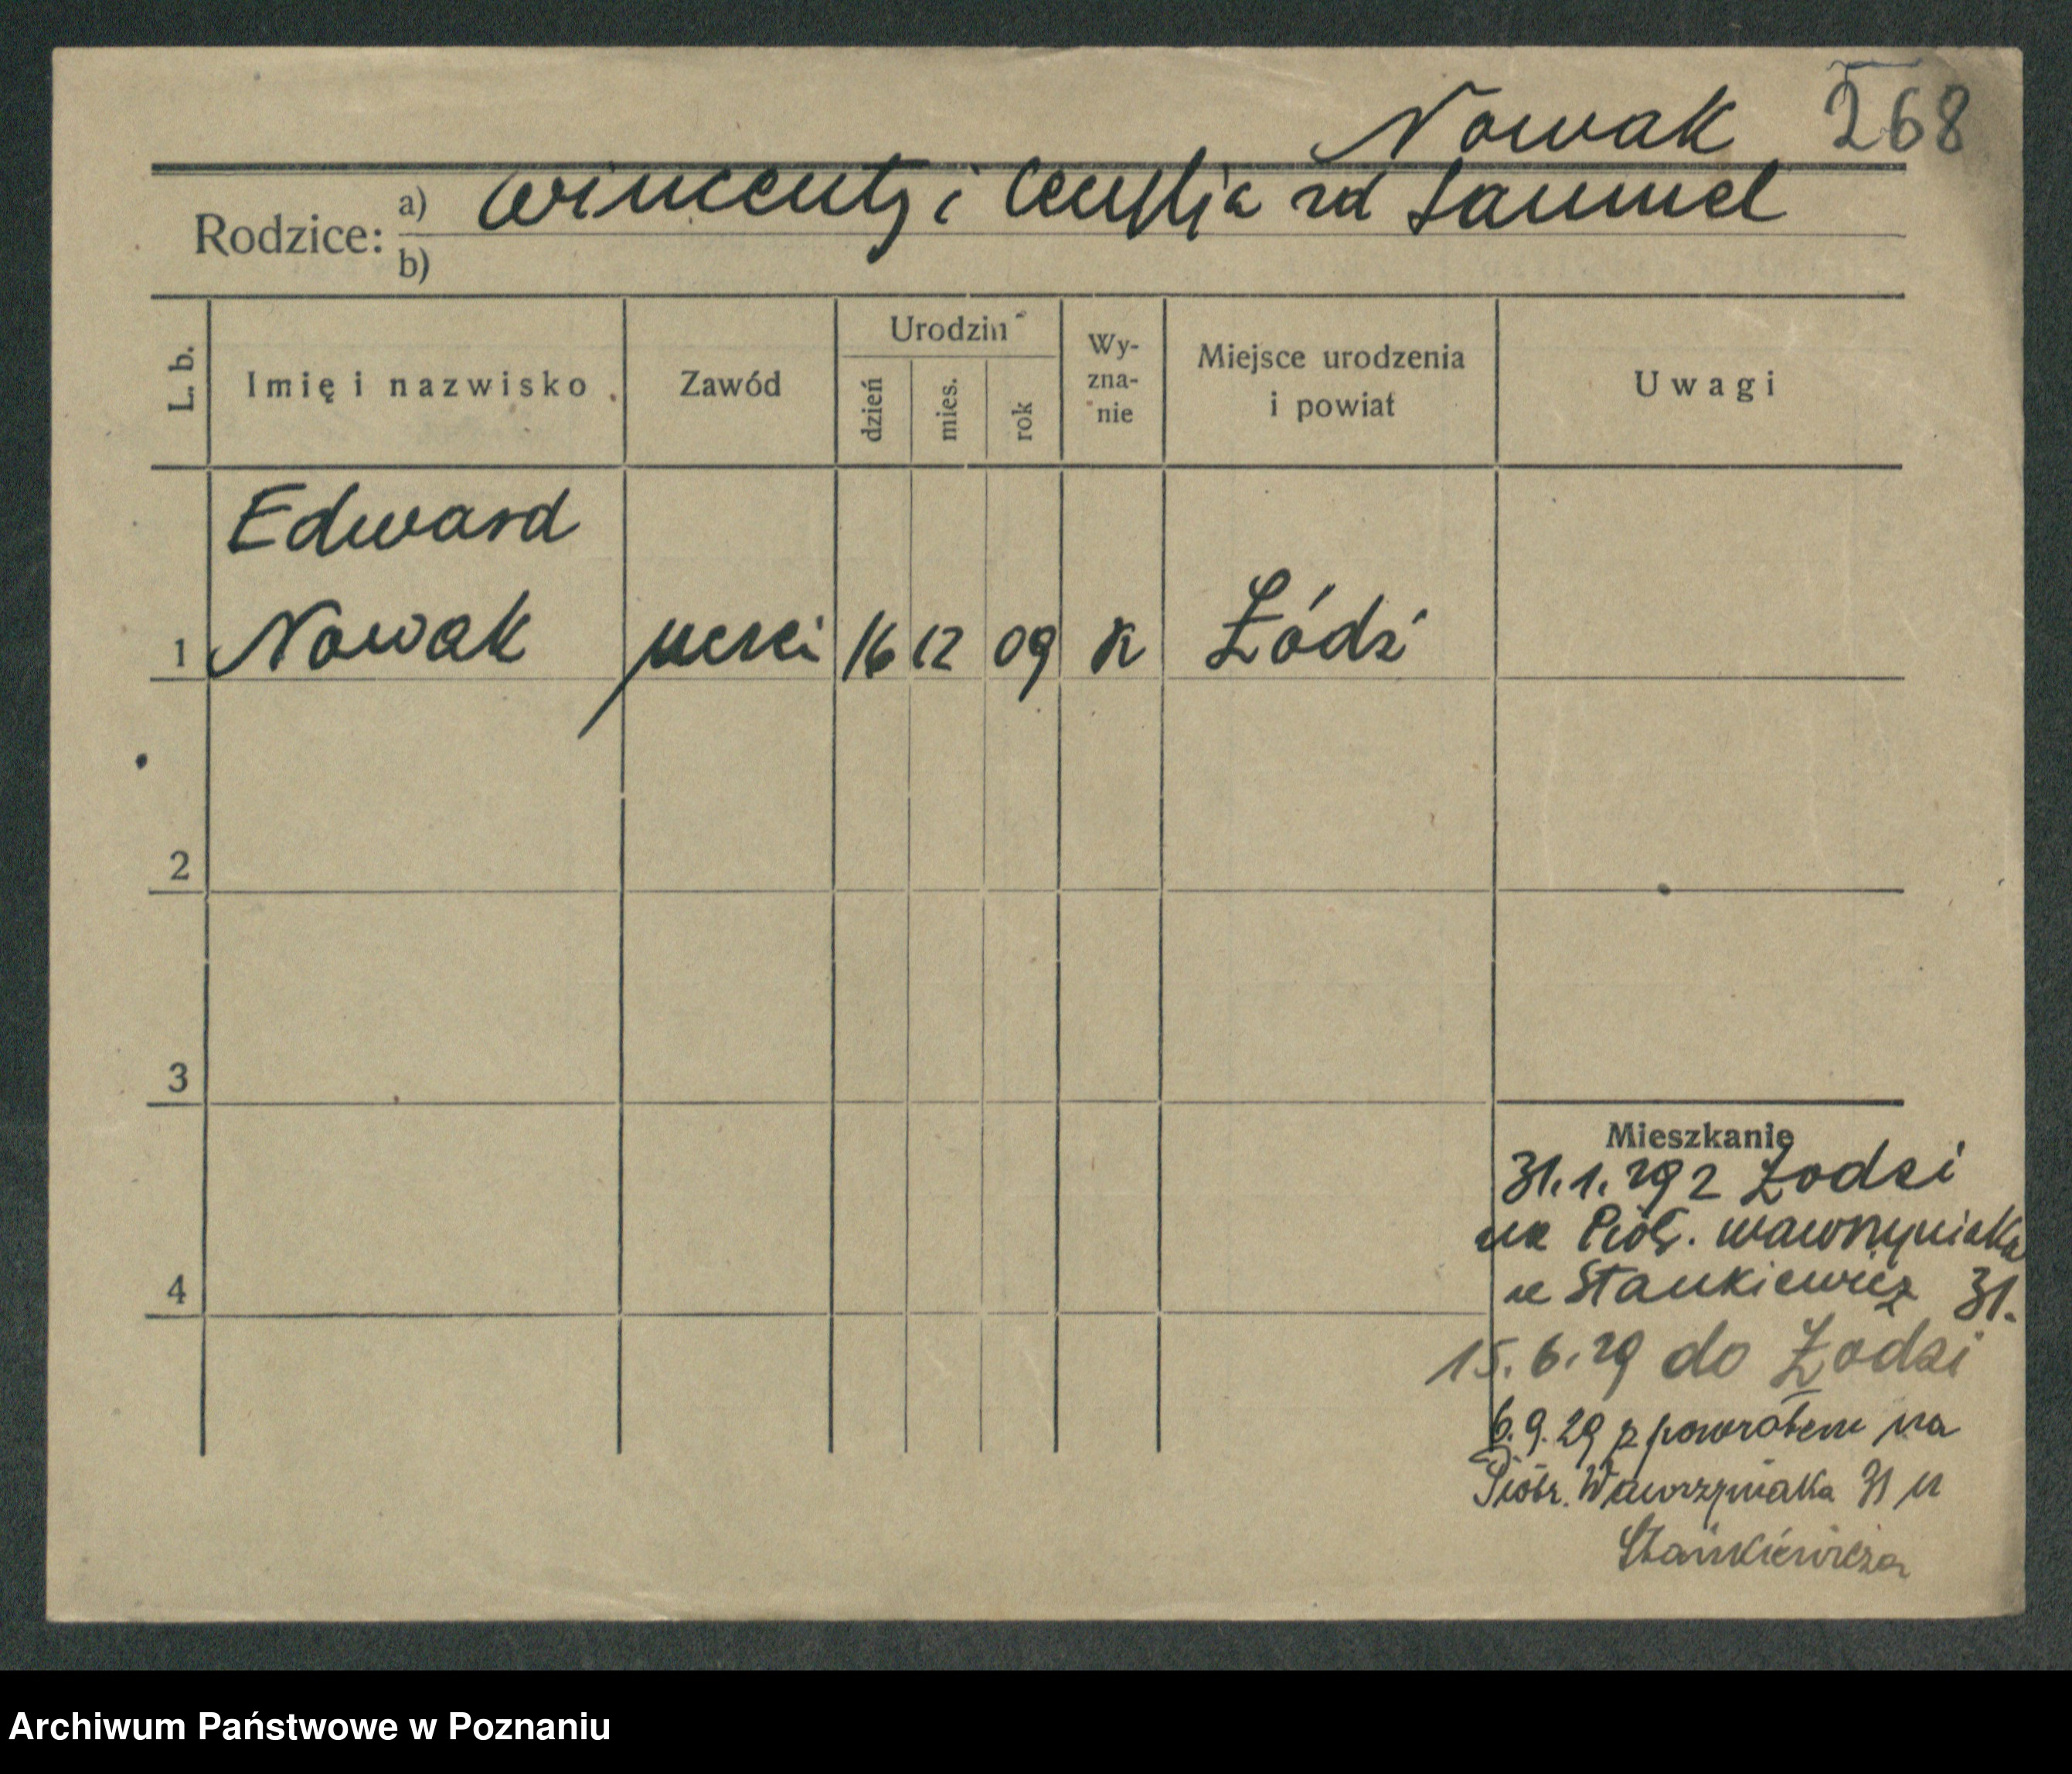 Nowak 268
Rodzice: a) Wincenty i zd Sammel
b)
L. b.
Imię i nazwisko
Zawód
Urodzin
dzień
mies.
rok
Wy-
zna-
nie
Miejsce urodzenia
i powiat
Uwagi
Edward
1 Nowak 16 12 09 K Łódź
2
3
4
Mieszkanie
31.1.29 z Łodzi
na Piotr. Wawrzyniaka
u Stankiewicz 31.
15.6.29 do Łodzi
6.9.29 z powrotem na
Piotr. Wawrzyniaka 31 u
Stankiewicza
Archiwum Państwowe w Poznaniu